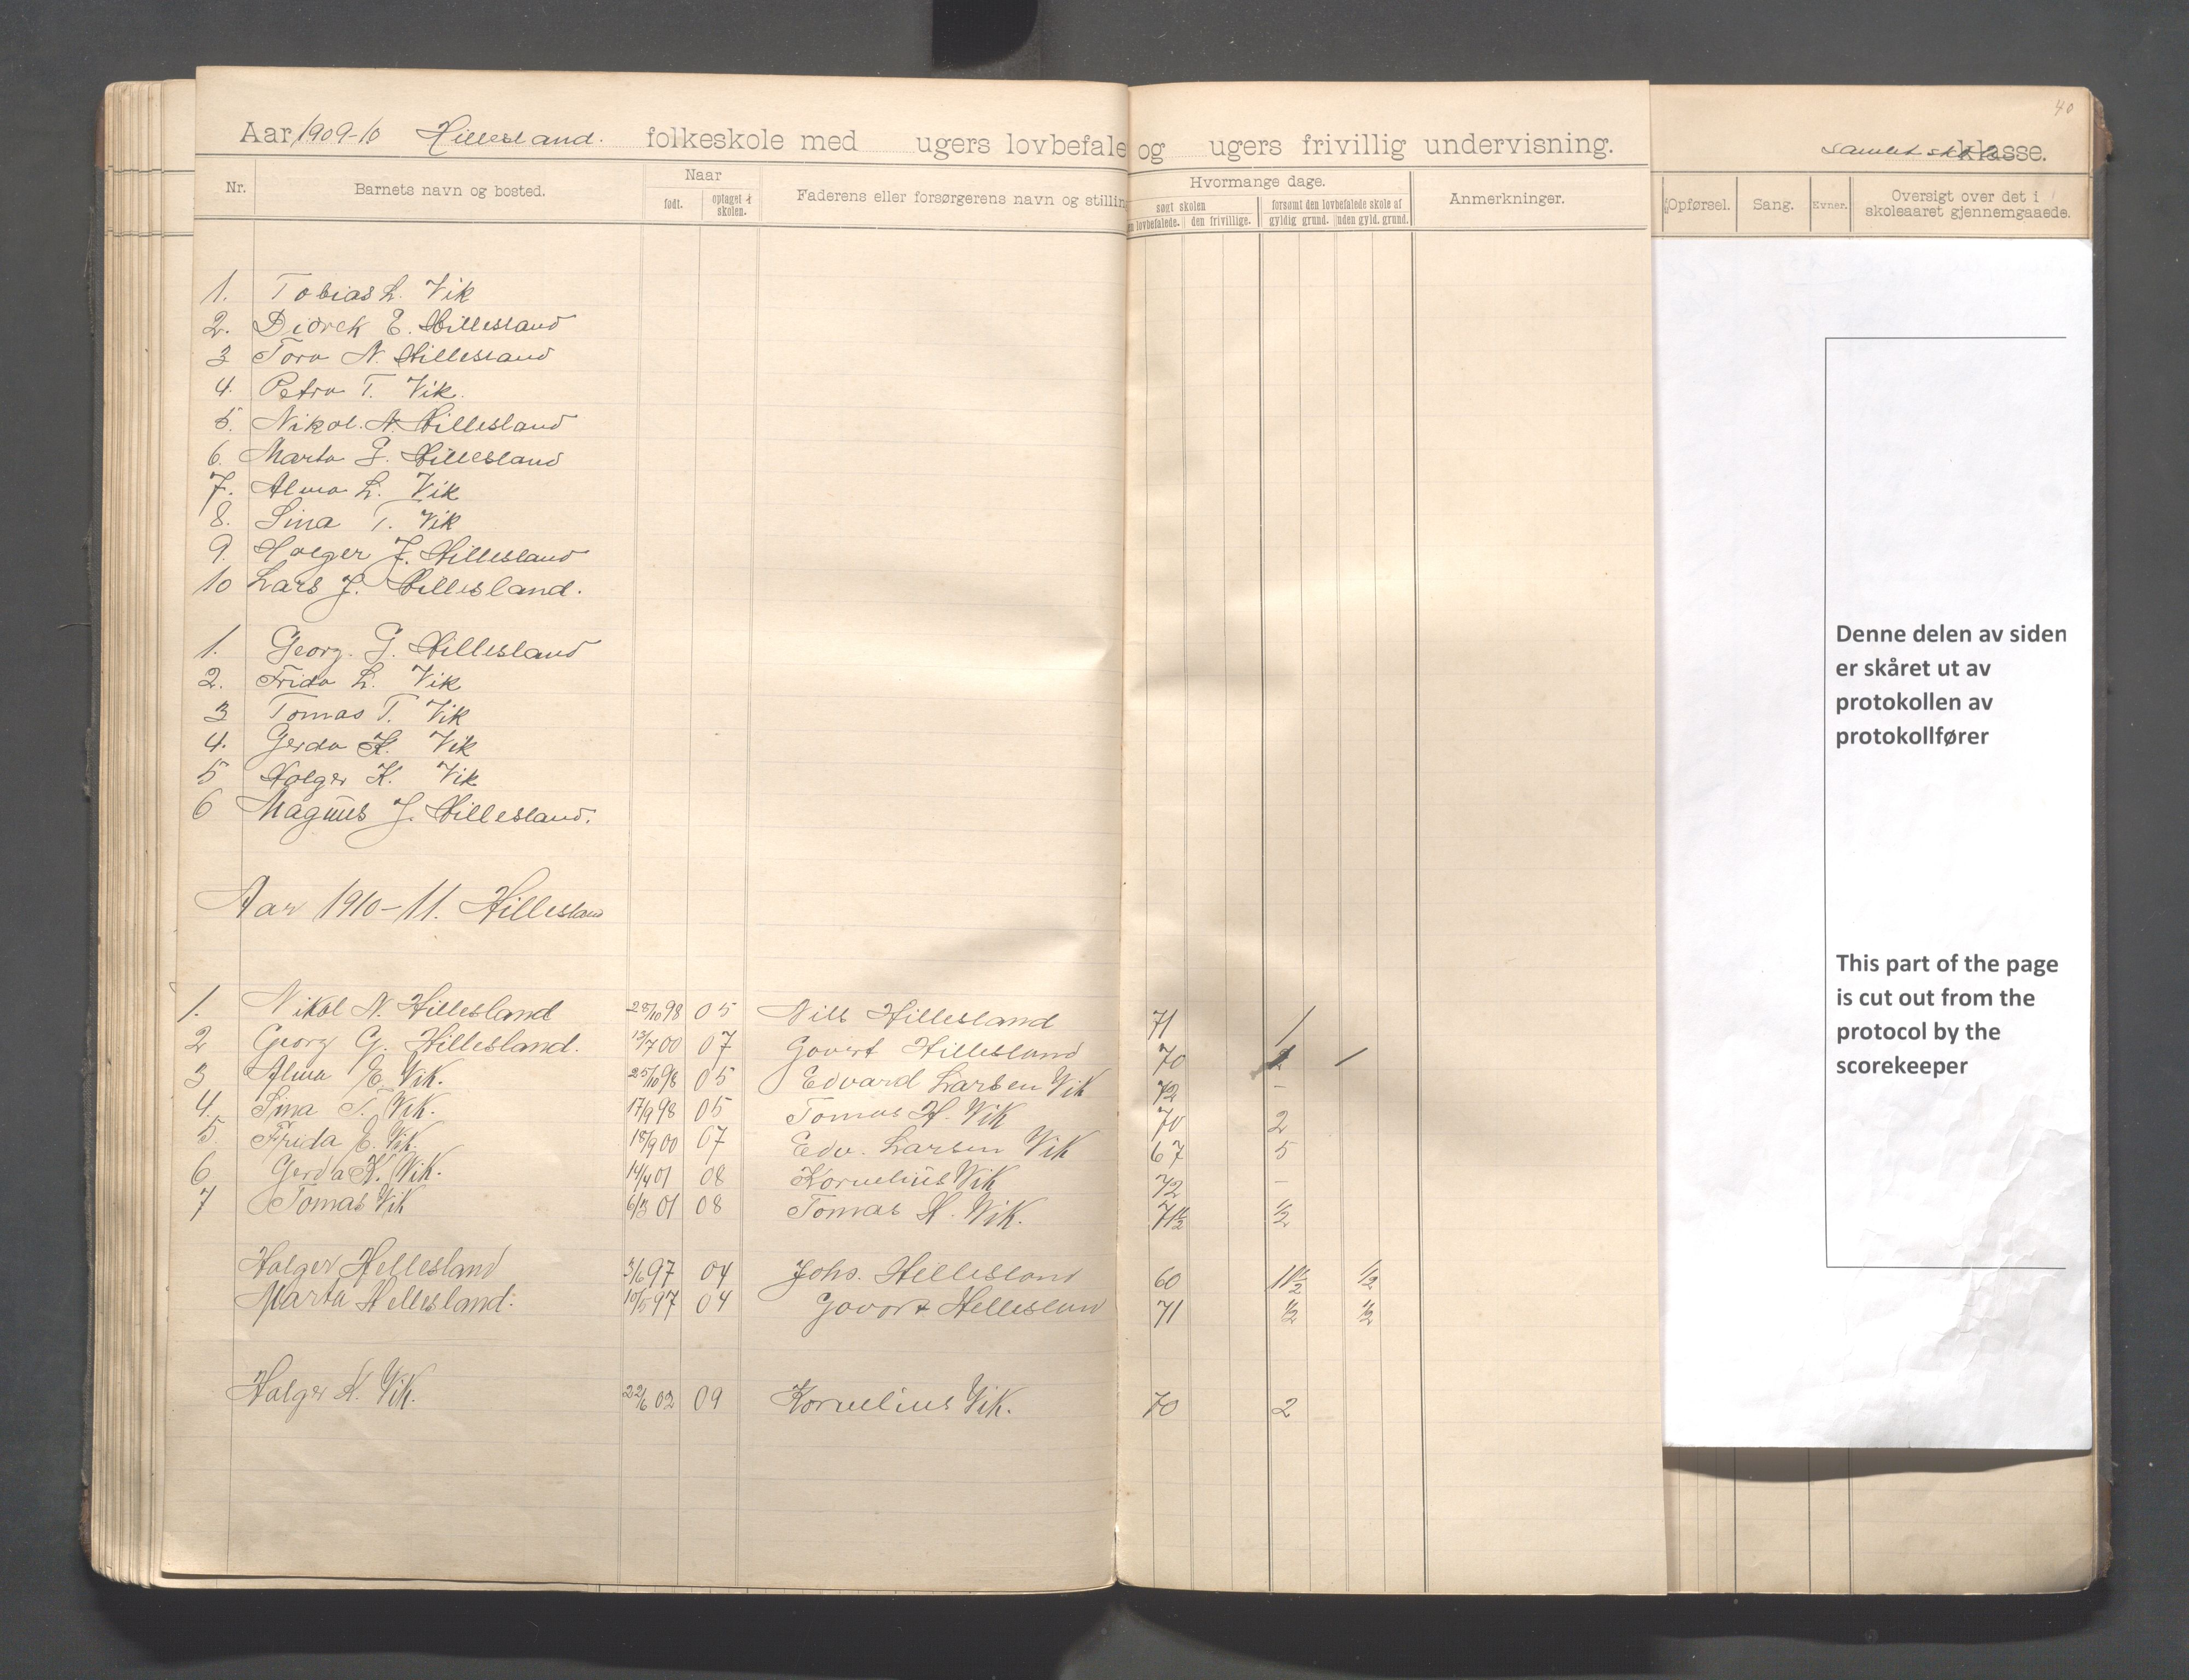 40
Aar 1909-10 Hillesland. folkeskole med ugers lovbefale og ugers frivillig undervisning. samlet skole klasse.
Nr. Barnets navn og bosted. Naar født. optaget i skolen. Faderens eller forsørgerens navn og stillin Hvormange dage. søgt skolen n lovbefalede. den frivillige. forsømt den lovbefalede skole af gyldig grund. uden gyld. grund. Anmerkninger. Opførsel. Sang. Evner. Oversigt over det i skoleaaret gjennemgaaede.
1. Tobias L. Vik
2. Didrek E. Hillesland
3 Tora N. Hillesland
4. Petra T. Vik.
5. Nikol. N. Hillesland
6. Marta G. Hillesland
7. Alma L. Vik
8. Sina T. Vik
9. Holger J. Hillesland
10 Lars J. Hillesland.
1. Georg. G. Hillesland
2. Frida L. Vik
3 Tomas T. Vik
4. Gerda K. Vik
5 Holger K. Vik
6 Magnus J. Hillesland.
Aar 1910-11. Hillesland
1. Nikol N. Hillesland 28/10 98 05 Nils Hillesland 71 1
2 Georg G. Hillesland. 13/7 00 07 Govert Hillesland 70 1 1
3 Alma E. Vik. 25/10 98 05 Edvard Larsen Vik 72 -
4. Sina T. Vik. 17/9 98 05 Tomas H. Vik 70 2
5. Frida E. Vik. 18/9 00 07 Edv. Larsen Vik 67 5
6 Gerda K. Vik. 14/4 01 08 Kornelius Vik 72 -
7 Tomas Vik 6/3 01 08 Tomas H. Vik. 71½ ½
Holger Hellesland 3/6 97 04 Johs. Hellesland 60 11½ ½
Marta Hellesland. 10/5 97 04 Govert Helleslan 71 ½ ½
Holger K. Vik. 22/6 02 09 Kornelius Vik. 70 2
Denne delen av siden
er skåret ut av
protokollen av
protokollfører
This part of the page
is cut out from the
protocol by the
scorekeeper